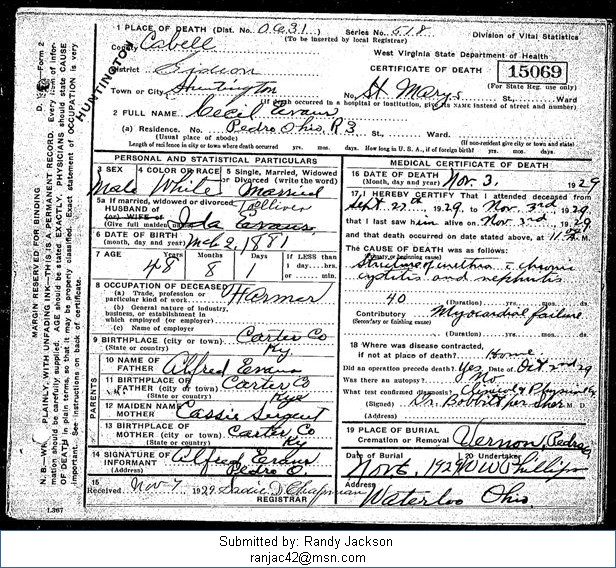 1 PLACE OF DEATH (Dist. No. 0631 Series No. 518 Division of Vital Statistics
(To be inserted by local Registrar)
County Cabell West Virginia State Department of Health
District Gideon CERTIFICATE OF DEATH 15069
(For State Reg. use only)
Town or City Huntington No. St. Marys St., Ward
If death occurred in a hospital or institution, give its NAME instead of street and number)
2 FULL NAME Cecil Evans
(a) Residence. No. Pedro Ohio, R 3 St., Ward.
(Usual place of abode) (If non-resident give city or town and state)
Length of residence in city or town where death occurred yrs. mos. ds. How long in U. S., if of foreign birth? yrs. mos. ds.
HUNTINGTON
D. Form 2
MARGIN RESERVED FOR BINDING
N. B.—WRITE PLAINLY, WITH UNFADING INK—THIS IS A PERMANENT RECORD. Every item of infor-
mation should be carefully supplied. AGE should be stated EXACTLY. PHYSICIANS should state CAUSE
OF DEATH in plain terms, so that it may be properly classified. Exact statement of OCCUPATION is very
important. See instructions on back of certificate.
PERSONAL AND STATISTICAL PARTICULARS
3 SEX 4 COLOR OR RACE 5 Single, Married, Widowed
or Divorced (write the word)
Male White Married
5a If married, widowed or divorced
HUSBAND of
(or) WIFE of
(Give full maiden Ida Evans
6 DATE OF BIRTH
(month, day and year) Mch 2, 1881
7 AGE Years Months Days If LESS than
48 8 1 1 day,....hrs.
or....min.
8 OCCUPATION OF DECEASED
(a) Trade, profession, or
particular kind of work Farmer
(b) General nature of industry,
business, or establishment in
which employed (or employer)
(c) Name of employer
9 BIRTHPLACE (city or town) Carter Co
(State or country) Ky
PARENTS
10 NAME OF
FATHER Alfred Evans
11 BIRTHPLACE OF
FATHER (city or town) Carter Co
(State or country) Ky
12 MAIDEN NAME OF
MOTHER Cassie Sergent
13 BIRTHPLACE OF
MOTHER (city or town) Carter Co
(State or country) Ky
14 SIGNATURE OF
INFORMANT Alfred Evans
(Address) Pedro O.
15
Received Nov 7 1929 Sadie D. Chapman
REGISTRAR
L367
MEDICAL CERTIFICATE OF DEATH
16 DATE OF DEATH
(Month, day and year) Nov. 3, 1929
17. I HEREBY CERTIFY That I attended deceased from
Sept. 27th, 1929, to Nov. 3rd, 1929
that I last saw him alive on Nov. 3rd, 1929
and that death occurred on date stated above, at M.
The CAUSE OF DEATH was as follows:
(Primary or beginning cause)
Stricture of urethra & chronic
cystitis and nephritis
40 (Duration) yrs. mos. ds.
Contributory Myocardial failure
(Secondary or finishing cause)
(Duration) yrs. mos. ds.
18 Where was disease contracted,
if not at place of death? Home
Did an operation precede death? Yes Date of Oct 2nd 29
Was there an autopsy? No
What test confirmed diagnosis? Clinical & Physical
(Signed) Dr. Bobbitt M. D.
(Address)
19 PLACE OF BURIAL
Cremation or Removal Vernon, Pedro
Date of Burial 20 Undertaker
Nov 6, 1929 O W Phillips
Address
Waterloo Ohio.
Submitted by: Randy Jackson
ranjac42@msn.com